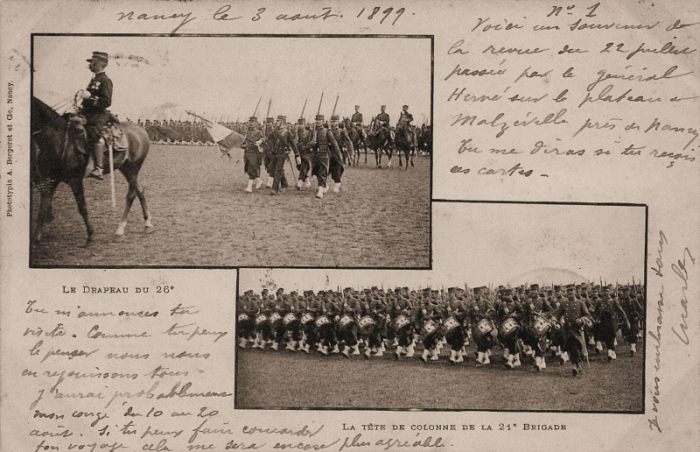 Nancy le 3 août. 1899.
N° 1
Voici un souvenir de
la revue du 22 juillet
passée par le général
Hervé sur le plateau de
Malzéville près de Nancy
Tu me diras si tu reçois
ces cartes -
Phototypie A. Bergeret et Cie, Nancy.
LE DRAPEAU DU 26e
Tu m'annonces ta
visite. Comme tu peux
le penser nous nous
en rejouissons tous -
J'aurai probablement
mon congé du 10 au 20
août. Si tu peux faire concorder
ton voyage cela me sera encore plus agréable.
LA TÊTE DE COLONNE DE LA 21e BRIGADE
Je vous embrasse tous
Charles